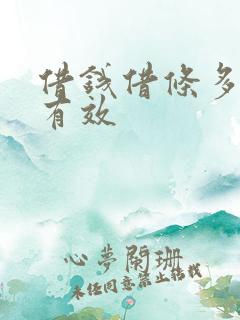 借錢借條多
有效
心夢閑珊
未经同意禁止转载